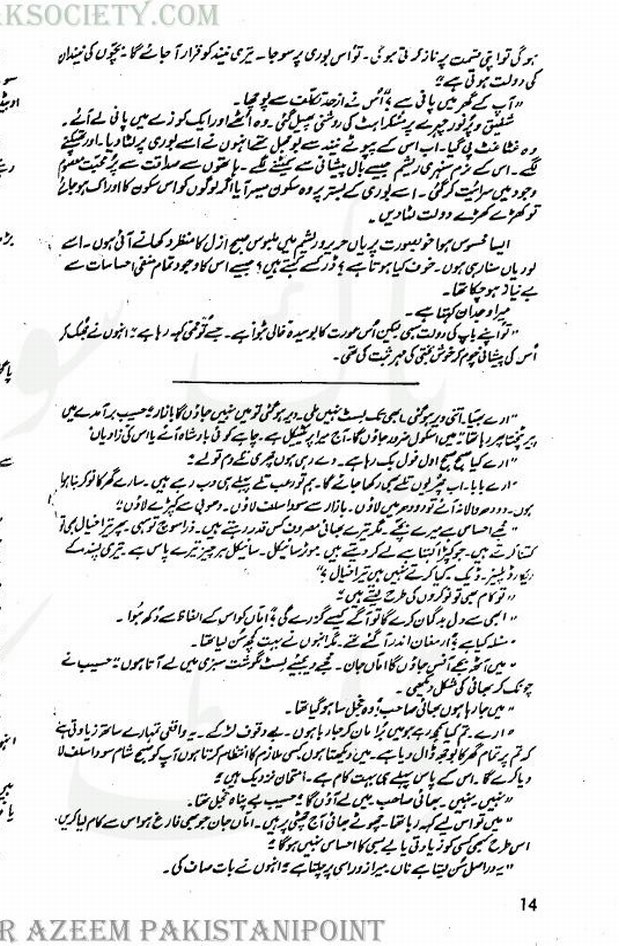 KSOCIETY.COM
ہوگی تو اپنی قسمت پر ناز کرتی ہوئی۔ تو اُس بوری پر سوجا۔ تیری نیند کو قرار آجائے گا۔ بچّوں کی نیند ان
کی دولت ہوتی ہے“
”آپ کے گھر میں پانی ہے؟“ اُس نے ازحد تکلف سے پوچھا۔
شفیق و پُرنور چہرے پر مسکراہٹ کی روشنی پھیل گئی۔ وہ اُٹھے اور ایک کوزے میں پانی لے آئے۔
وہ غٹاغٹ پی گیا۔ اب اس کے پپوٹے نیند سے بوجھل تھے انہوں نے اسے بوری پر لٹا دیا۔ اور تھپکنے
لگے۔ اس کے نرم سنہری ریشم جیسے بال پیشانی سے سمیٹنے لگے۔ ہاتھوں سے صداقت سے پُر محبت معصوم
وجود میں سرائیت کر گئی۔ اسے بوری کے بستر پر وہ سکون میسر آیا اگر لوگوں کو اس سکون کا ادراک ہو جائے
تو کھڑے کھڑے دولت لٹا دیں۔
ایسا محسوس ہوا خوبصورت پریاں حریر و ریشم میں ملبوس صبح ازل کا منظر دکھانے آئی ہوں۔ اسے
لوریاں سنا رہی ہوں۔ خوف کیا ہوتا ہے؟ ڈر کسے کہتے ہیں؟ جیسے اس کا وجود تمام منفی احساسات سے
بے نیاز ہو چکا تھا۔
میرا وجدان کہتا ہے۔
”تو اپنے باپ کی دولت سہی لیکن اُس عورت کا بوسیدہ خالی بٹوا ہے۔ جسے تُو ممی کہہ رہا ہے“ انہوں نے جُھک کر
اُس کی پیشانی چوم کر خوش بختی کی مہر ثبت کی تھی۔
”ارے بھیا۔ اتنی دیر ہو گئی۔ ابھی تک لسٹ نہیں ملی۔ دیر ہو گئی تو میں نہیں جاؤں گا بازار“ حسیب برآمدے میں
پیر پٹختا پھر رہا تھا“ میں اسکول ضرور جاؤں گا۔ آج میرا پریکٹیکل ہے۔ چاہے کوئی بادشاہ آئے یا اس کی زادیاں“
”ارے کیا صبح صبح اول فول بک رہا ہے۔ دے رہی ہوں چھری تلے دم تو لے“
”ارے بابا۔ اب چھریوں تلے بھی رکھا جائے گا۔ ہم تو رعب تلے پہلے ہی دب رہے ہیں۔ سارے گھر کا نوکر بنا ہوا
ہوں۔ دودھ والا نہ آئے تو دودھ میں لاؤں۔ بازار سے سودا سلف لاؤں۔ دھوبی سے کپڑے لاؤں“
”مجھے احساس ہے میرے بچے۔ مگر تیرے بھائی مصروف کس قدر رہتے ہیں۔ ذرا سوچ تو سہی۔ پھر تیرا خیال بھی تو
کتنا کرتے ہیں۔ جو کپڑا کہتا ہے لے کر دیتے ہیں۔ موٹر سائیکل۔ سائیکل ہر چیز تیرے پاس ہے۔ تیری پسند کے
ریکارڈ پلیئر۔ ڈیک۔ کیا کرتے نہیں ہیں تیرا خیال؟“
”تو کام بھی تو نوکروں کی طرح لیتے ہیں“
”ابھی سے دل بدگمان کرے گا تو آگے کیسے گزرے گی؟“ امّاں کو اس کے الفاظ سے دُکھ ہوا۔
”مسئلہ کیا ہے؟“ ارمغان اندر آ گئے تھے۔ مگر انہوں نے بہت کچھ سُن لیا تھا۔
”میں آٹھ بجے آفس جاؤں گا امّاں جان۔ مجھے دیجئے لسٹ گوشت سبزی میں لے آتا ہوں“ حسیب نے
چونک کر بھائی کی شکل دیکھی۔
”میں جا رہا ہوں بھائی صاحب“ وہ خجل سا ہو گیا تھا۔
”ارے۔ تم کیا سمجھ رہے ہو میں بُرا مان کر جا رہا ہوں۔ بے وقوف لڑکے۔ یہ واقعی تمہارے ساتھ زیادتی ہے
کہ تم پر تمام گھر کا بوجھ ڈال دیا ہے۔ میں دیکھتا ہوں کسی ملازم کا انتظام کرتا ہوں آپ کو صبح شام سودا سلف لا
دیا کرے گا۔ اس کے پاس پہلے ہی بہت کام ہے۔ امتحان نزدیک ہیں“
”نہیں۔ نہیں۔ بھائی صاحب میں لے آؤں گا“ حسیب بے پناہ خجل تھا۔
”میں تو اس لیے کہہ رہا تھا۔ چھوٹے بھائی آج چھٹی پر ہیں۔ امّاں جان جو بھی فارغ ہو اس سے کام لیا کریں۔
اس طرح کبھی کسی کو زیادتی یا بے بسی کا احساس نہیں ہوگا“
”یہ دراصل سُن لیتا ہے ناں۔ میرا زور اسی پر چلتا ہے“ انہوں نے بات صاف کی۔
14
R AZEEM PAKISTANIPOINT